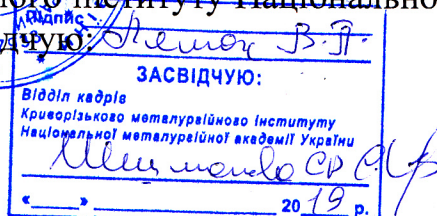 ого інституту Національно
Підпис
дчую: Лямок В.П.
ЗАСВІДЧУЮ:
Відділ кадрів
Криворізького металургійного інституту
Національної металургійної академії України
« » 2019 р.